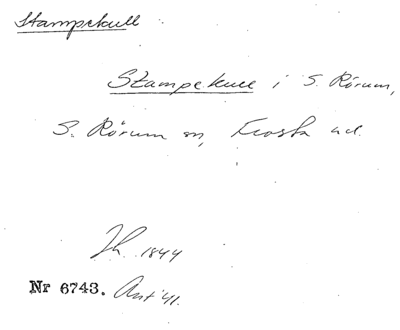 Stampekull
Stampekull i S. Rörum,
S. Rörum sn, Frosta hd.
Jh. 1844
Nr 6743. Ant 41.